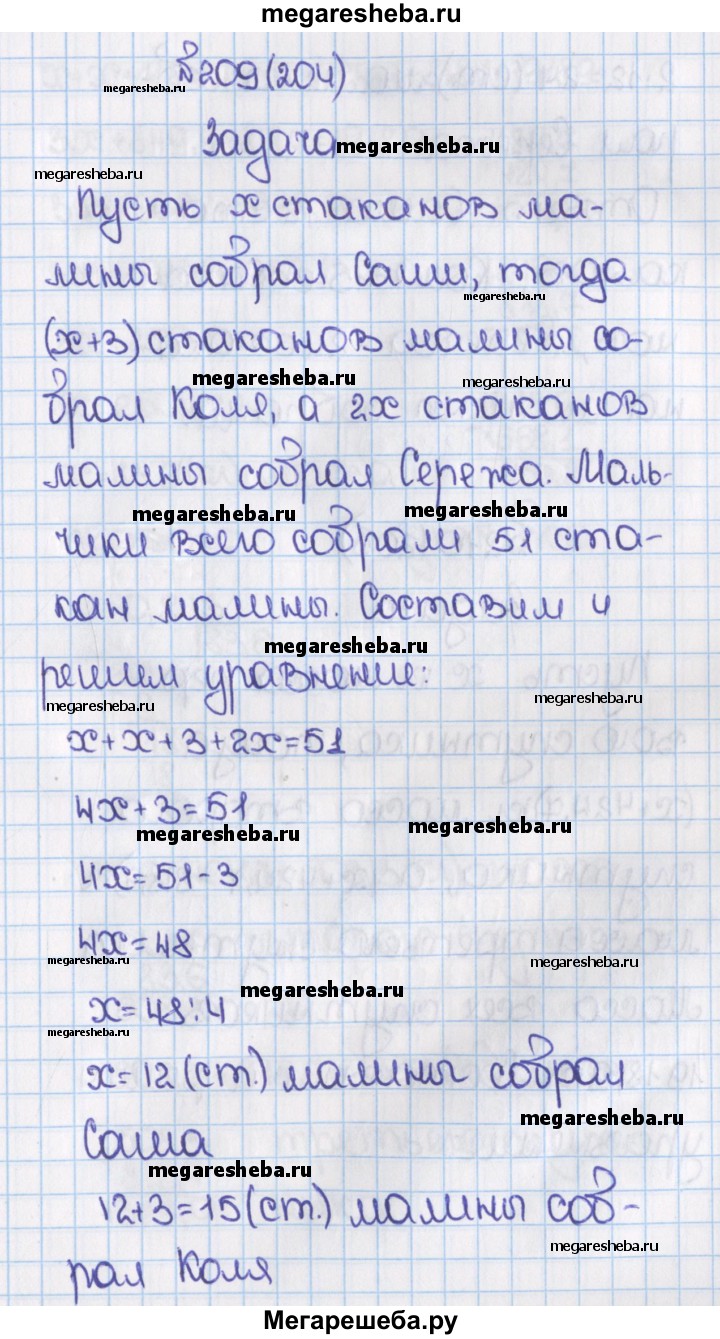 megaresheba.ru
№209(204)
megaresheba.ru
Задача
megaresheba.ru
megaresheba.ru
Пусть x стаканов ма-
лины собрал Саши, тогда
megaresheba.ru
(x+3) стаканов малины со-
megaresheba.ru
megaresheba.ru
брал Коля, а 2x стаканов
малины собрал Сережа. Маль-
megaresheba.ru
megaresheba.ru
чики всего собрали 51 ста-
кан малины. Составим и
megaresheba.ru
решим уравнение:
megaresheba.ru
megaresheba.ru
x+x+3+2x=51
4x+3=51
megaresheba.ru
megaresheba.ru
4x=51-3
4x=48
megaresheba.ru
megaresheba.ru
megaresheba.ru
x=48:4
megaresheba.ru
x=12 (ст.) малины собрал
megaresheba.ru
Саша
megaresheba.ru
12+3=15(ст.) малины соб-
megaresheba.ru
рал Коля
Мегарешеба.ру